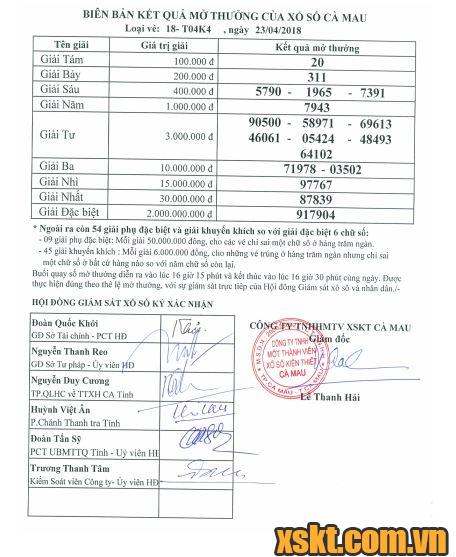 BIÊN BẢN KẾT QUẢ MỞ THƯỞNG CỦA XỔ SỐ CÀ MAU
Loại vé: 18- T04K4 , ngày 23/04/2018
Tên giải Giá trị giải Kết quả mở thưởng
Giải Tám 100.000 đ 20
Giải Bảy 200.000 đ 311
Giải Sáu 400.000 đ 5790 - 1965 - 7391
Giải Năm 1.000.000 đ 7943
Giải Tư 3.000.000 đ 90500 - 58971 - 69613
46061 - 05424 - 48493
64102
Giải Ba 10.000.000 đ 71978 - 03502
Giải Nhì 15.000.000 đ 97767
Giải Nhất 30.000.000 đ 87839
Giải Đặc biệt 2.000.000.000 đ 917904
* Ngoài ra còn 54 giải phụ đặc biệt và giải khuyến khích so với giải đặc biệt 6 chữ số:
- 09 giải phụ đặc biệt: Mỗi giải 50.000.000 đồng, cho các vé chỉ sai một chữ số ở hàng trăm ngàn.
- 45 giải khuyến khích : Mỗi giải 6.000.000 đồng, cho những vé trúng ở hàng trăm ngàn nhưng chỉ sai
một chữ số ở bất cứ hàng nào so với năm chữ số còn lại.
Buổi quay số mở thưởng diễn ra vào lúc 16 giờ 15 phút và kết thúc vào lúc 16 giờ 30 phút cùng ngày. Được
thực hiện đúng theo thể lệ mở thưởng, với sự giám sát trực tiếp của Hội đồng Giám sát xổ số và nhân dân./-
HỘI ĐỒNG GIÁM SÁT XỔ SỐ KÝ XÁC NHẬN
Đoàn Quốc Khởi
GĐ Sở Tài chính - PCT HĐ
Nguyễn Thanh Reo
GĐ Sở Tư pháp - Ủy viên HĐ
Nguyễn Duy Cương
TP.QLHC về TTXH CA Tỉnh
Huỳnh Việt Ân
P.Chánh Thanh tra Tỉnh
Đoàn Tấn Sỹ
PCT UBMTTQ Tỉnh - Uỷ viên HĐ
Trương Thanh Tâm
Kiểm Soát viên Công ty- Ủy viên HĐ
CÔNG TY TNHHMTV XSKT CÀ MAU
Giám đốc
CÔNG TY TNHH
MỘT THÀNH VIÊN
XỔ SỐ KIẾN THIẾT
CÀ MAU
TP.CÀ MAU - T.CÀ MAU
Lê Thanh Hải
xskt.com.vn